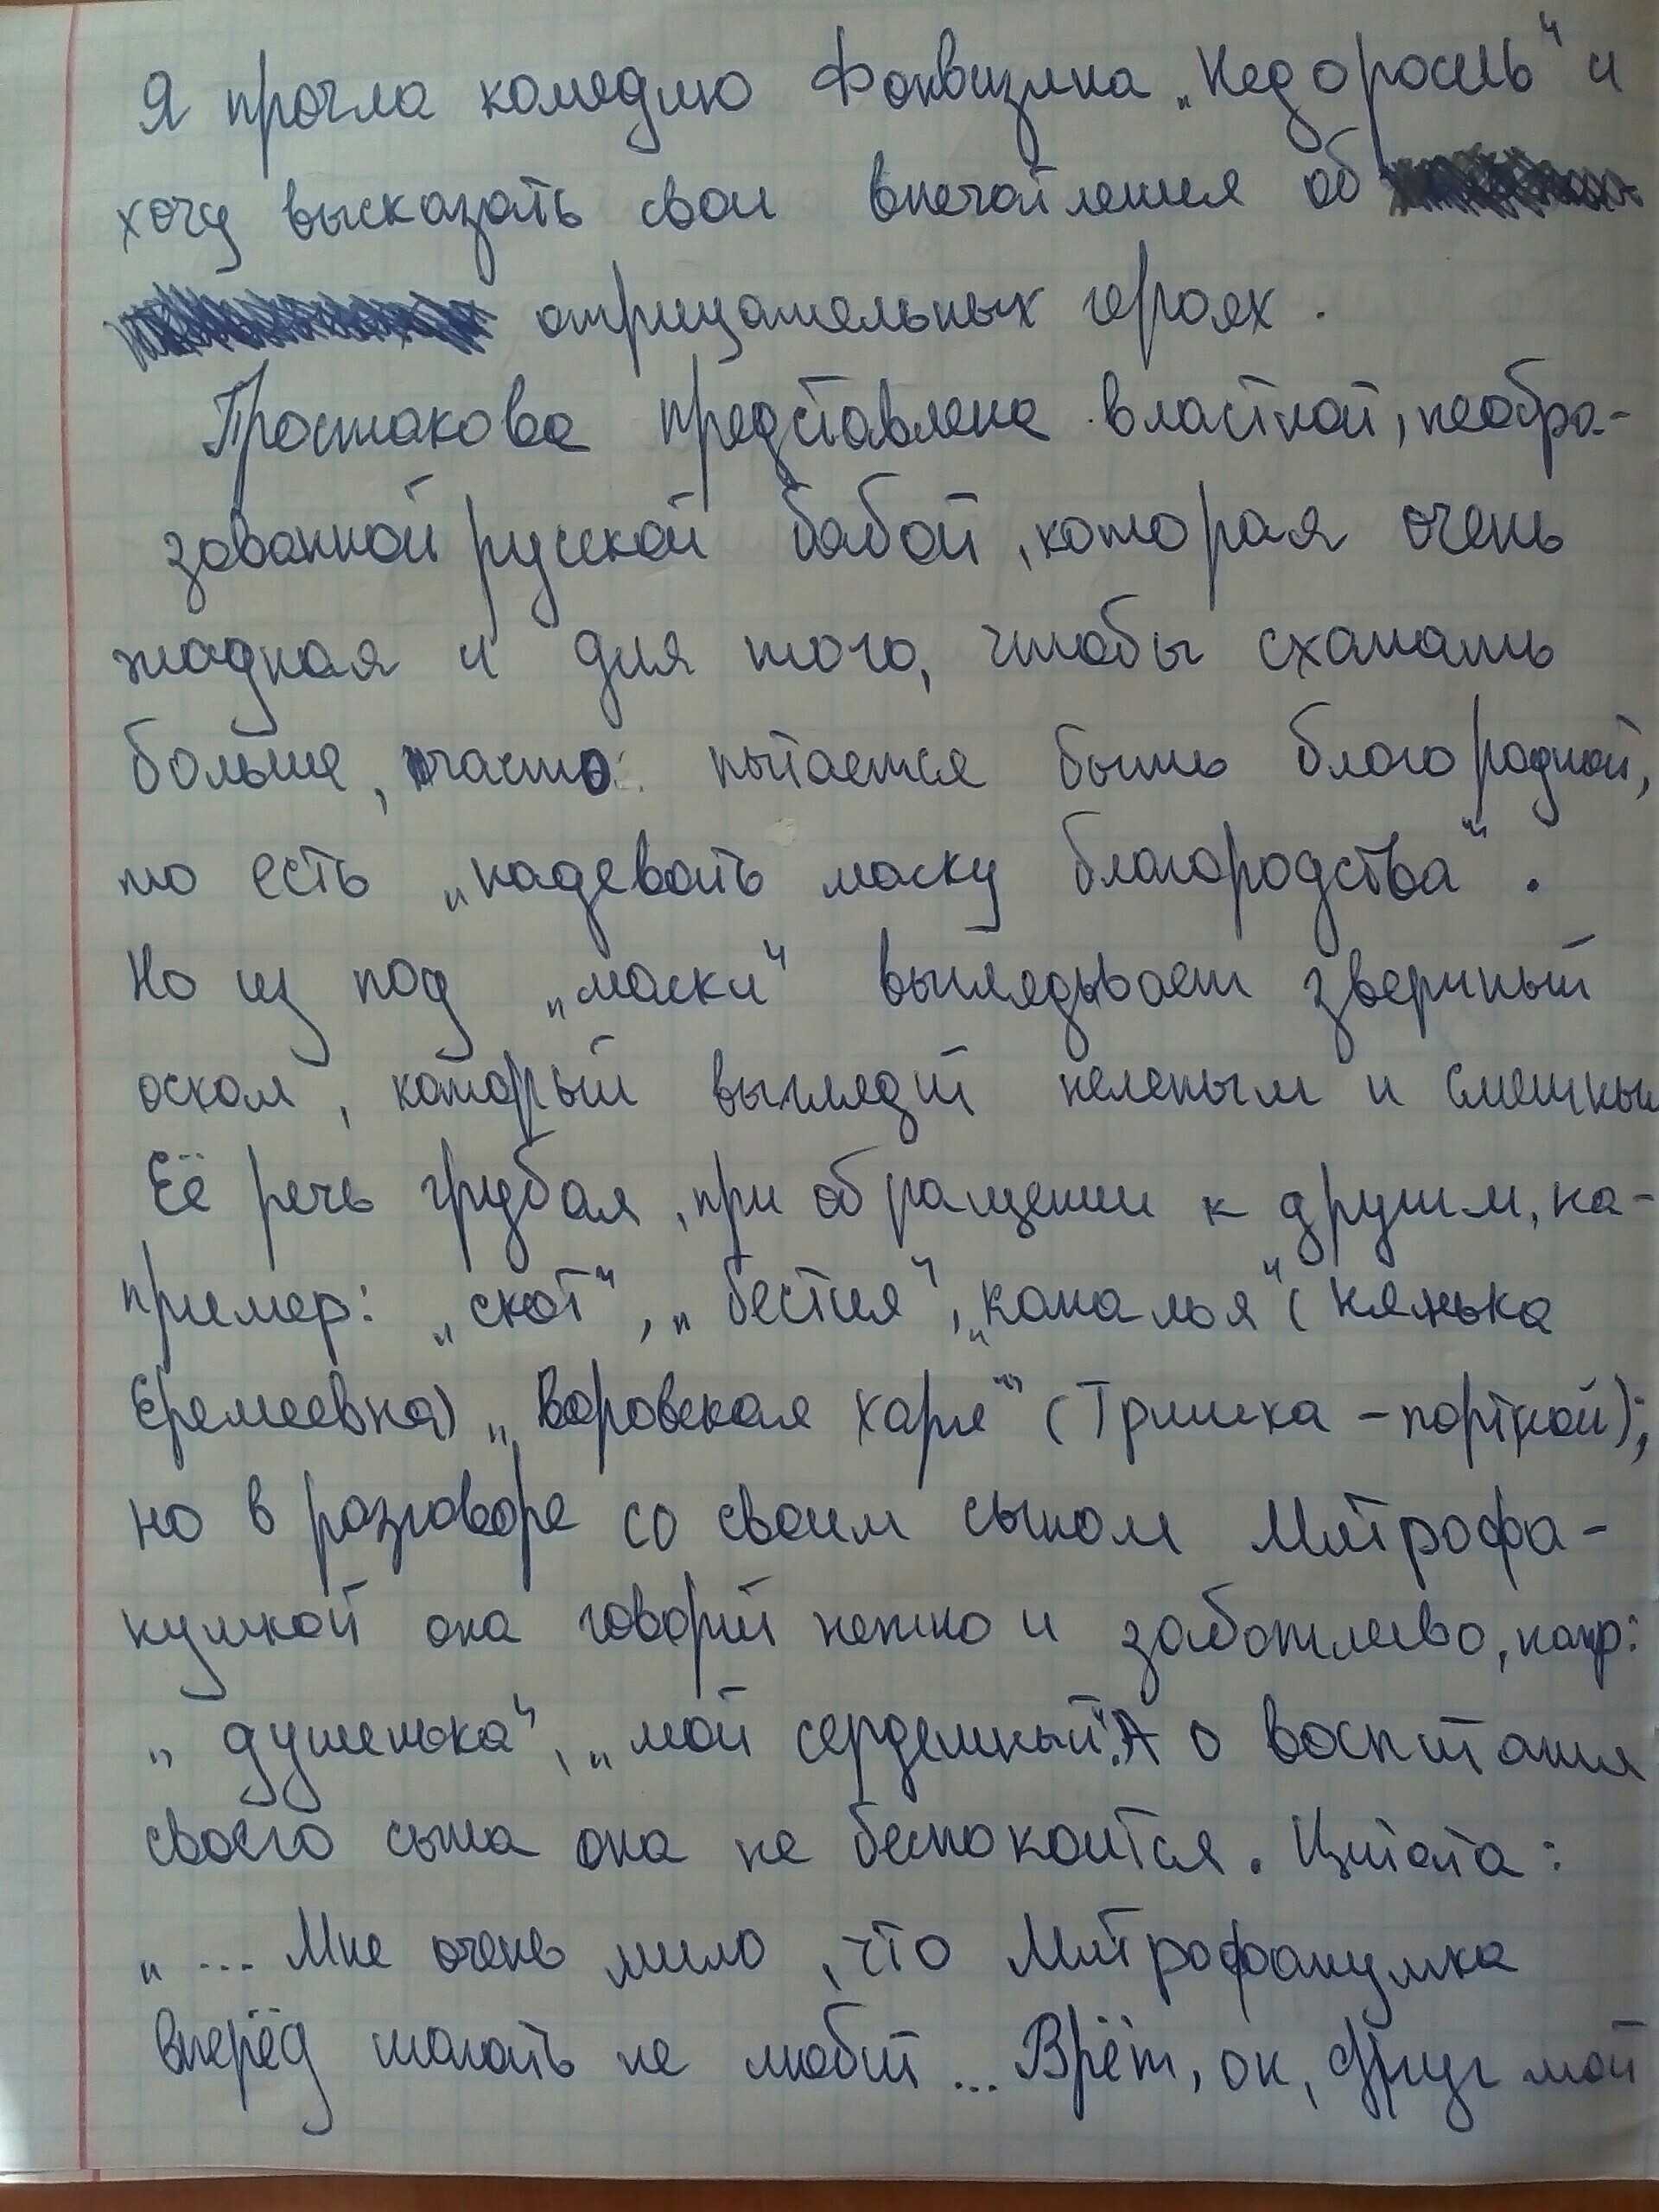 Я прочла комедию Фонвизина „Недоросль" и
хочу высказать свои впечатления об
отрицательных героях.
Простакова представлена властной, необра-
зованной русской бабой, которая очень
жадная и для того, чтобы схапать
больше, часто пытается быть благородной,
то есть „надевать маску благородства".
Но из под „маски" выглядывает звериный
оскал, который выглядит нелепым и смешным
Её речь грубая, при обращении к другим, на-
пример: „скот", „бестия", „каналья" (нянька
Еремеевна) „Воровская харя" (Тришка - портной);
но в разговоре со своим сыном Митрофа-
нушкой она говорит нежно и заботливо, напр:
„душенька", „мой сердешный". А о воспитании
своего сына она не беспокоится. Цитата:
„... Мне очень мило, что Митрофанушка
вперёд шагать не любит ... Врёт, он, друг мой